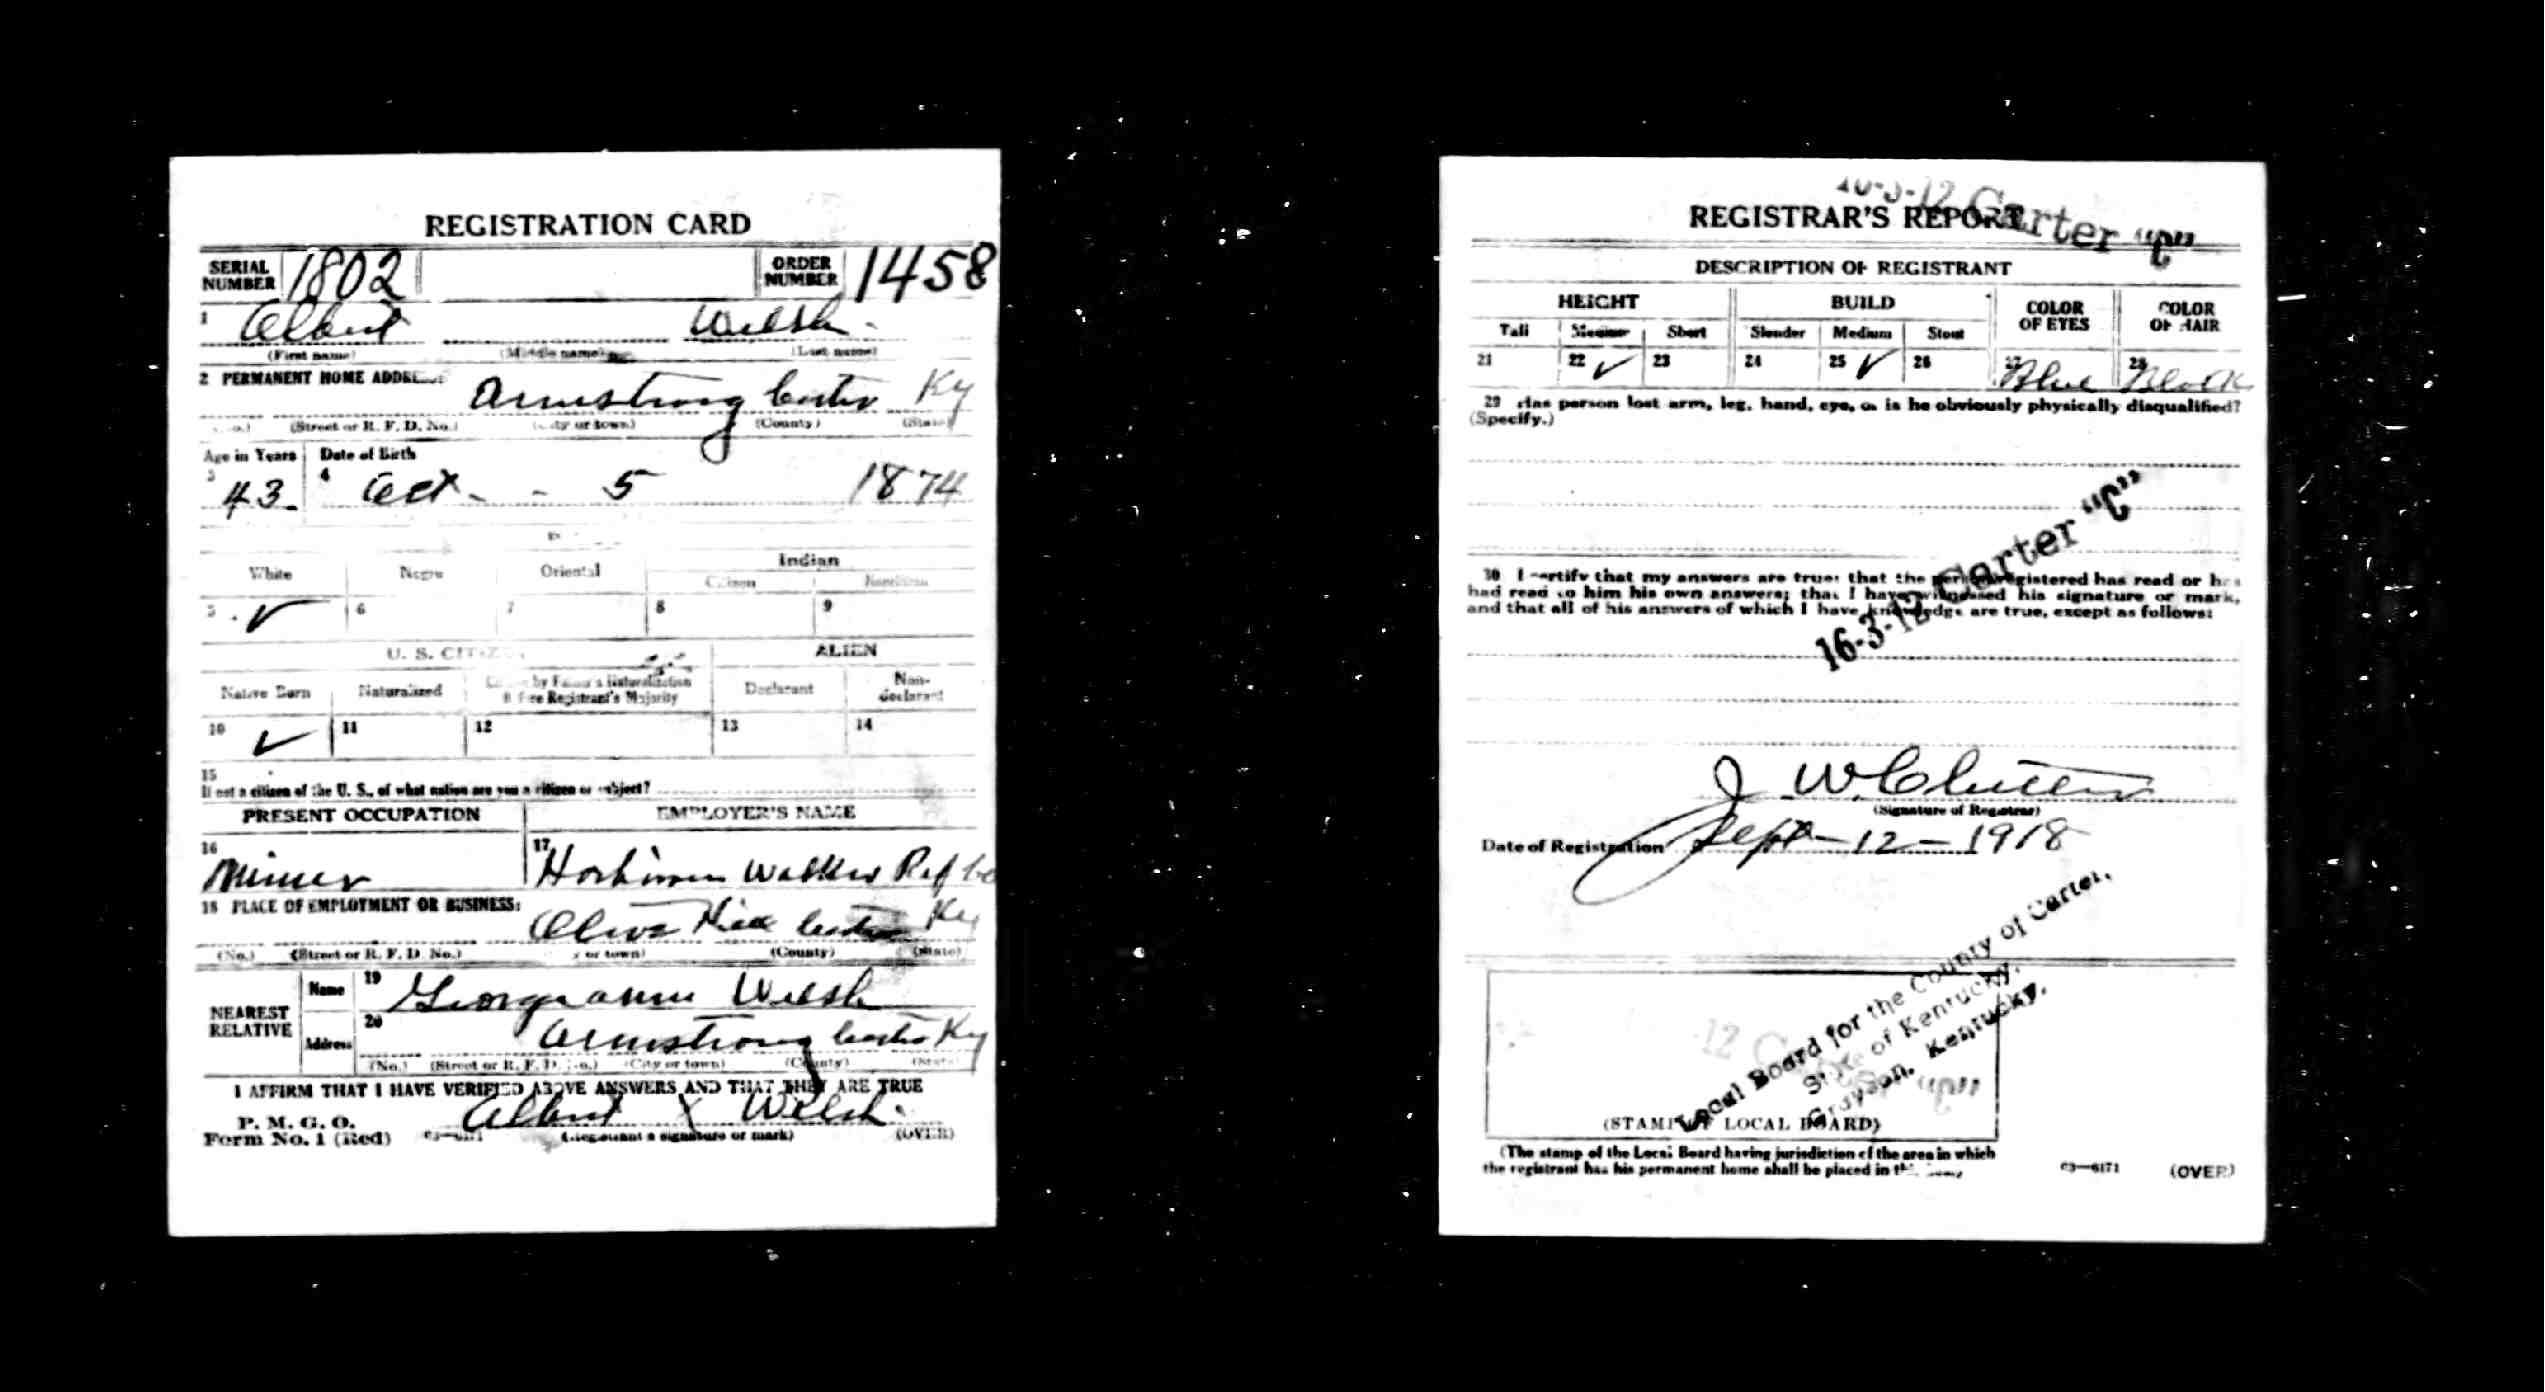 REGISTRATION CARD
SERIAL NUMBER 1802 ORDER NUMBER 1458
1 Albert Welsh
(First name) (Middle name) (Last name)
2 PERMANENT HOME ADDRESS:
Armstrong Carter Ky
(No.) (Street or R. F. D. No.) (City or town) (County) (State)
Age in Years Date of Birth
3 43 4 Oct - - 5 1874
Indian
White Negro Oriental Citizen Noncitizen
5 ✓ 6 7 8 9
U. S. CITIZEN ALIEN
Native Born Naturalized Citizen by Father's Naturalization Before Registrant's Majority Declarant Non-declarant
10 ✓ 11 12 13 14
15
If not a citizen of the U. S., of what nation are you a citizen or subject?
PRESENT OCCUPATION EMPLOYER'S NAME
16 Miner 17 Walker Ref Co
18 PLACE OF EMPLOYMENT OR BUSINESS:
Olive Hill Carter Ky
(No.) (Street or R. F. D. No.) (City or town) (County) (State)
NEAREST RELATIVE
Name 19 Georgeann Welsh
Address 20 Armstrong Carter Ky
(No.) (Street or R. F. D. No.) (City or town) (County) (State)
I AFFIRM THAT I HAVE VERIFIED ABOVE ANSWERS AND THAT THEY ARE TRUE
P. M. G. O.
Form No. 1 (Red) 03—6171 Albert X Welsh
(Registrant's signature or mark) (OVER)
16-3-12 Carter "C"
REGISTRAR'S REPORT
DESCRIPTION OF REGISTRANT
HEIGHT BUILD COLOR OF EYES COLOR OF HAIR
Tall Medium Short Slender Medium Stout
21 22 ✓ 23 24 25 ✓ 26 27 Blue 28 Black
29 Has person lost arm, leg, hand, eye, or is he obviously physically disqualified?
(Specify.)
16-3-12 Carter "C"
30 I certify that my answers are true; that the person registered has read or has
had read to him his own answers; that I have witnessed his signature or mark,
and that all of his answers of which I have knowledge are true, except as follows:
J. W.
(Signature of Registrar)
Date of Registration Sept - 12 - 1918
Local Board for the County of Carter,
State of Kentucky.
Grayson, Kentucky.
(STAMP OF LOCAL BOARD)
(The stamp of the Local Board having jurisdiction of the area in which
the registrant has his permanent home shall be placed in this
03—6171 (OVER)